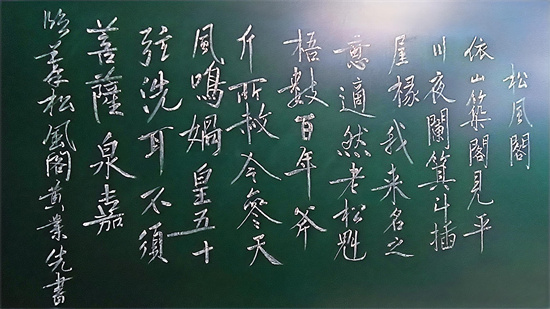 松風閣
依山築閣見平
川夜闌箕斗插
屋椽我来名之
意適然老松魁
梧數百年斧
斤所赦今參天
風鳴媧皇五十
弦洗耳不須
菩薩泉嘉
臨松風閣黄業先書